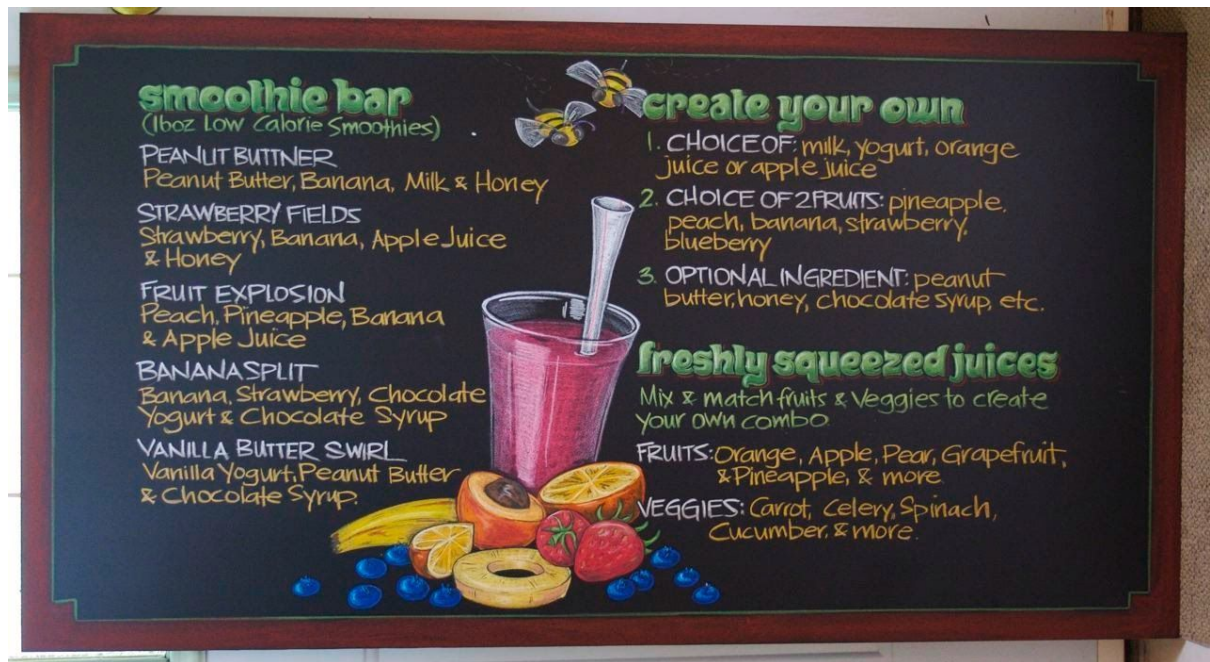 smoothie bar
(16oz Low Calorie Smoothies)
PEANUT BUTTNER
Peanut Butter, Banana, Milk & Honey
STRAWBERRY FIELDS
Strawberry, Banana, Apple Juice
& Honey
FRUIT EXPLOSION
Peach, Pineapple, Banana
& Apple Juice
BANANA SPLIT
Banana, Strawberry, Chocolate
Yogurt & Chocolate Syrup
VANILLA BUTTER SWIRL
Vanilla Yogurt, Peanut Butter
& Chocolate Syrup.
create your own
1. CHOICE OF: milk, yogurt, orange
juice or apple juice
2. CHOICE OF 2 FRUITS: pineapple,
peach, banana, strawberry,
blueberry
3. OPTIONAL INGREDIENT: peanut
butter, honey, chocolate syrup, etc.
freshly squeezed juices
Mix & match fruits & Veggies to create
your own combo.
FRUITS: Orange, Apple, Pear, Grapefruit,
& Pineapple, & more.
VEGGIES: Carrot, Celery, Spinach,
Cucumber, & more.